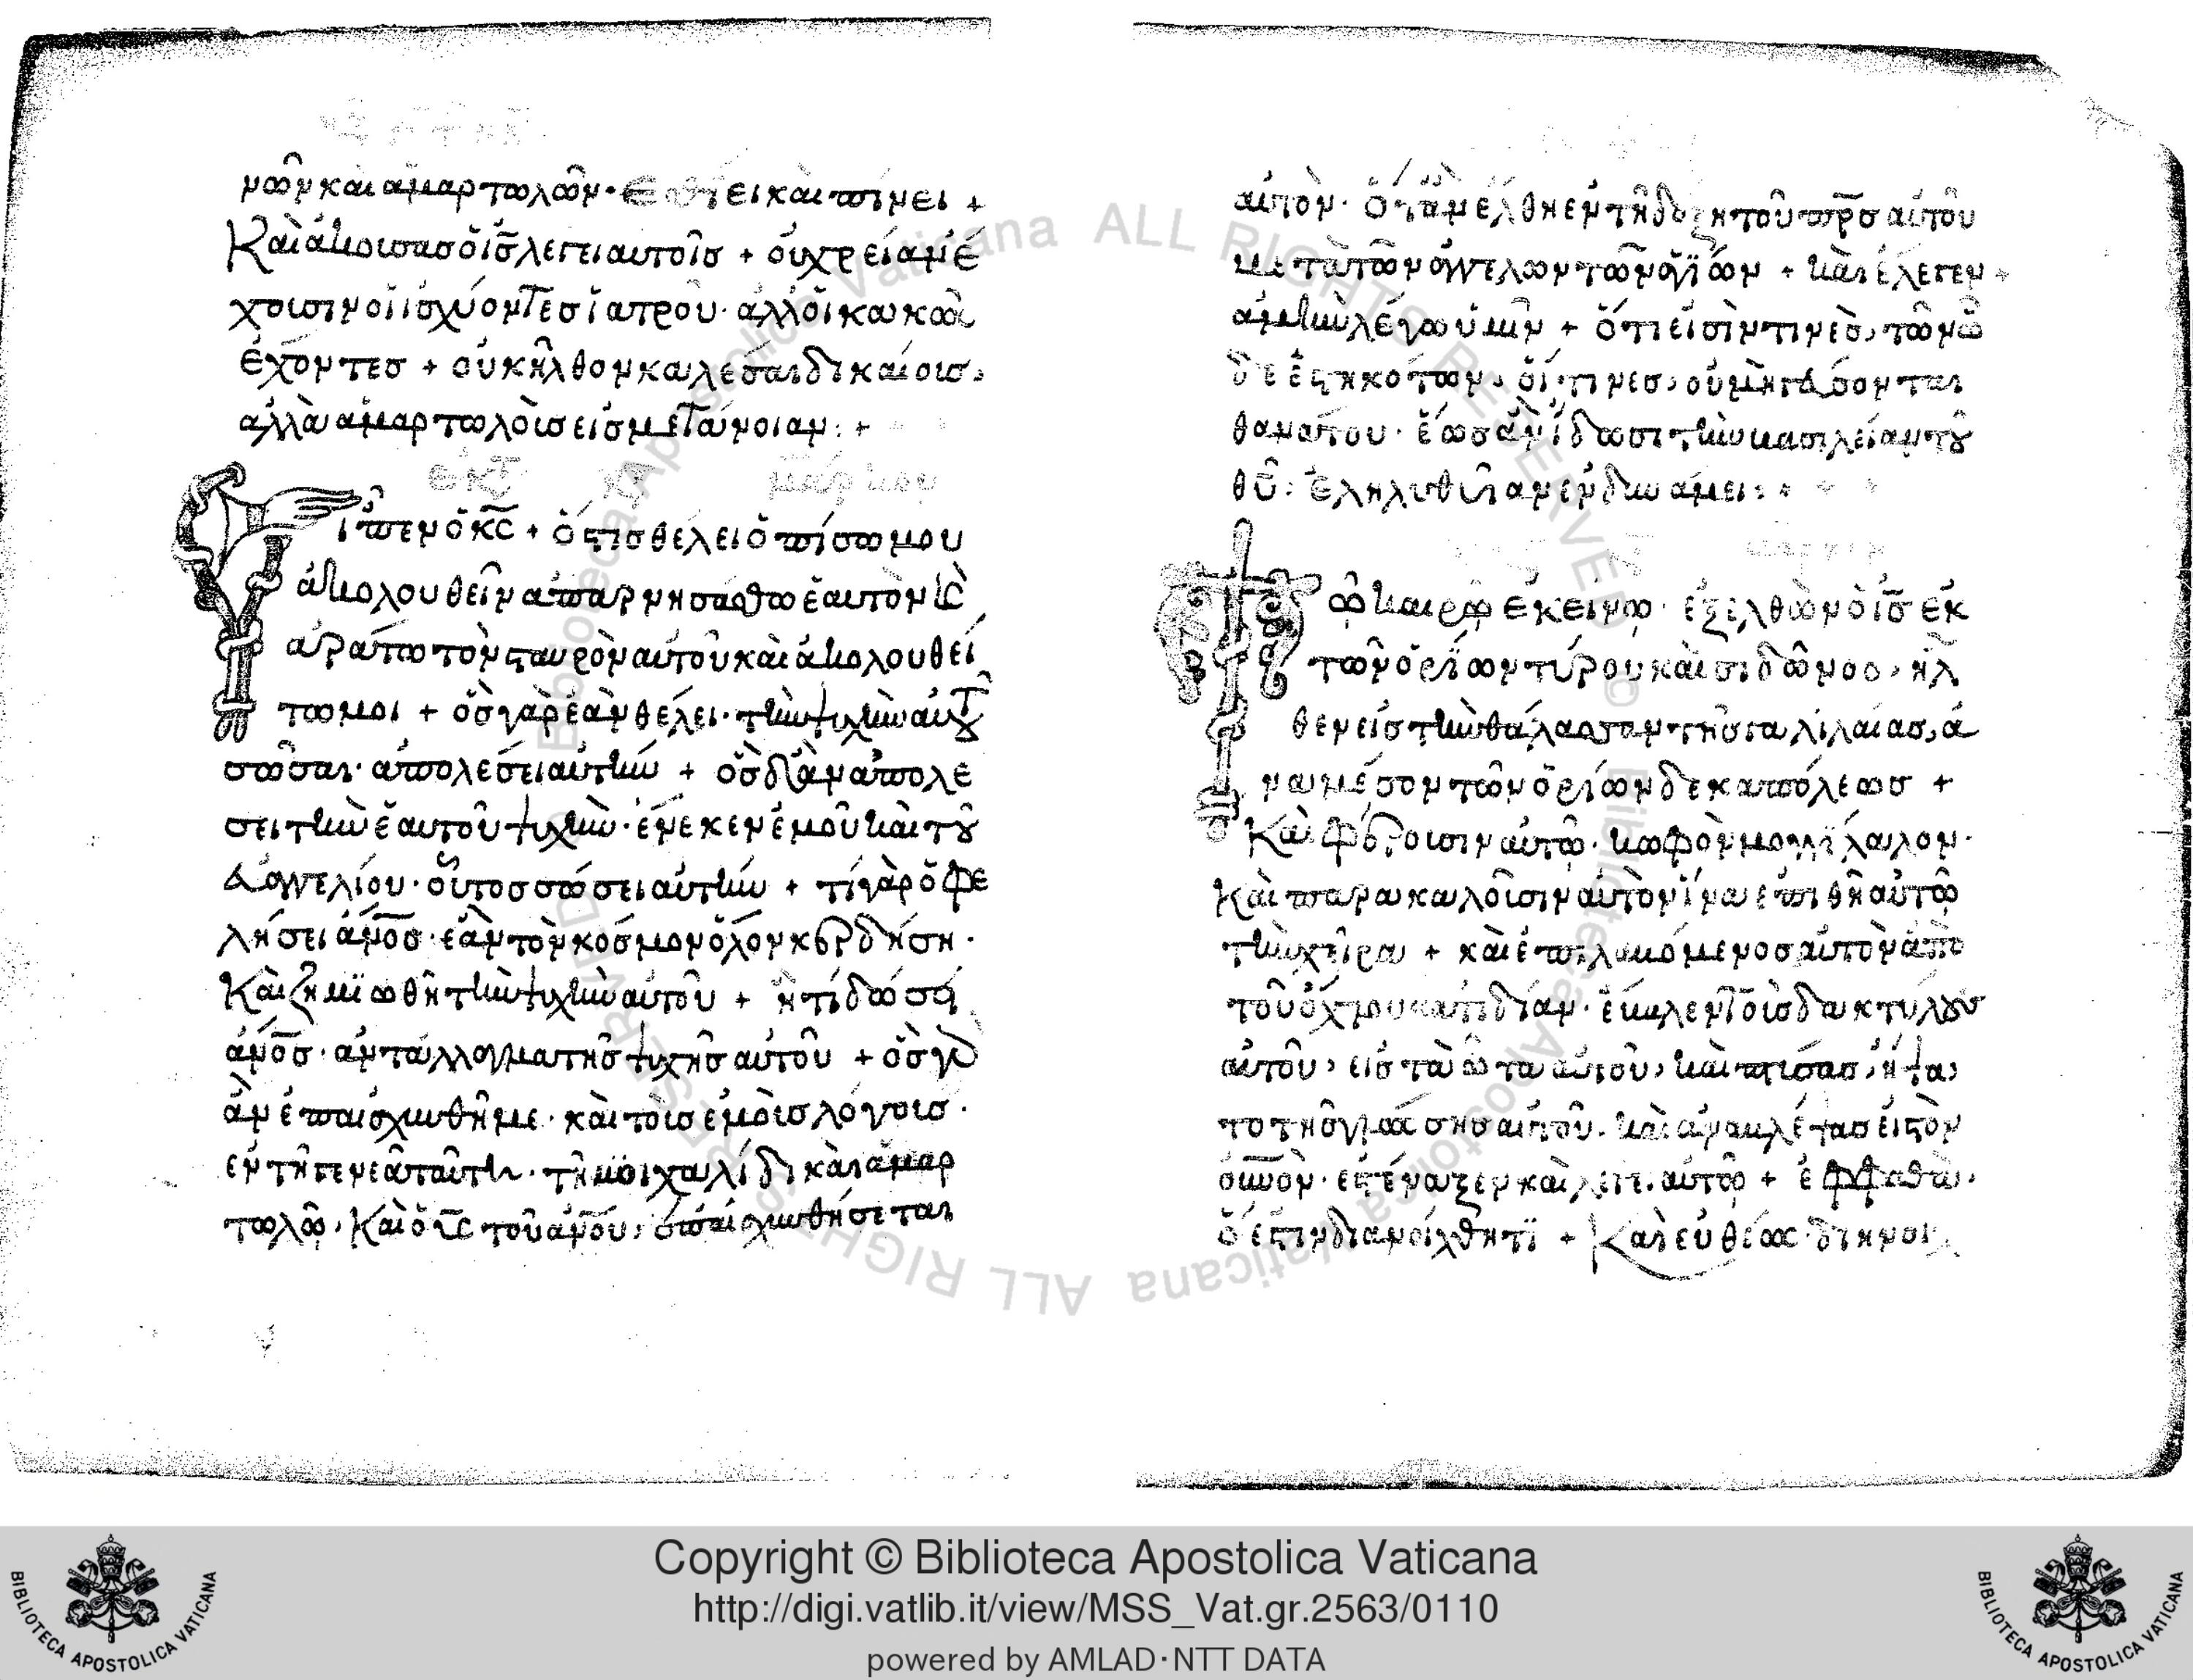 νῶν καὶ ἁμαρτωλῶν· ἐσθίει καὶ πίνει +
Καὶ ἀκούσας ὁ ι̅ς̅ λέγει αὐτοῖς + οὐ χρείαν ἔ
χουσιν οἱ ἰσχύοντες ἰατροῦ· ἀλλ' οἱ κακῶς
ἔχοντες + οὐκ ἦλθον καλέσαι δικαίους,
ἀλλὰ ἁμαρτωλοὺς εἰς μετάνοιαν : +
μάρκου
ἶπεν ὁ κ̅ς̅ + ὅστις θέλει ὀπίσω μου
ἀκολουθεῖν ἀπαρνησάσθω ἑαυτὸν κ̀
ἀράτω τὸν σταυρὸν αὐτοῦ καὶ ἀκολουθεί
τω μοι + ὃς γὰρ ἐὰν θέλει· τὴν ψυχὴν αὐτοῦ
σῶσαι· ἀπολέσει αὐτήν + ὃς δ' ἂν ἀπολέ
σει τὴν ἑαυτοῦ ψυχὴν· ἕνεκεν ἐμοῦ καὶ τοῦ
εὐαγγελίου· οὗτος σώσει αὐτήν + τί γὰρ ὀφε
λήσει α̅ν̅ο̅ς̅· ἐὰν τὸν κόσμον ὅλον κερδήση·
Καὶ ζημϊωθῆ τὴν ψυχὴν αὐτοῦ + ἢ τί δώσει
α̅ν̅ο̅ς̅· ἀντάλλαγμα τῆς ψυχῆς αὐτοῦ + ὃς γὰρ
ἂν ἐπαισχυνθῆ με· καὶ τοὺς ἐμοὺς λόγους·
ἐν τῆ γενεᾶ ταύτη· τῆ μοιχαλίδι καὶ ἁμαρ
τωλῶ· Καὶ ὁ υ̅ς̅ τοῦ α̅ν̅ο̅υ̅· ἐπαισχυνθήσεται
αὐτὸν· ὅταν ἔλθη ἐν τῆ δόξη τοῦ π̅ρ̅ς̅ αὐτοῦ
μετὰ τῶν ἀγγέλων τῶν ἁγΐων + καὶ ἔλεγεν +
ἀμὴν λέγω ὑμῖν + ὅτι εἰσὶν τινὲς, τῶν ὧ
δε ἑστηκότων, οἵτινες, οὐ μὴ γεύσονται
θανάτου· ἕως ἂν ἴδωσι τὴν βασιλείαν τοῦ
θ̅υ̅: ἐληλυθυῖαν ἐν δυνάμει : +
ῶ καιρῶ ἐκείνω· ἐξελθὼν ὁ ι̅ς̅ ἐκ
τῶν ὁρΐων τύρου καὶ σιδῶνος, ἦλ
θεν εἰς τὴν θάλασσαν τῆς γαλιλαίας, ἀ
να μέσον τῶν ὁρίων δεκαπόλεως +
Καὶ φέρουσιν αὐτῶ· κωφὸν μογγϊλάλον·
Καὶ παρακαλοῦσιν αὐτὸν ἵνα ἐπιθῆ αὐτῶ
τὴν χεῖρα + καὶ ἐπιλαβόμενος αὐτὸν ἀπὸ
τοῦ ὄχλου κατ' ἰδίαν· ἔβαλεν τοὺς δακτύλους
αὐτοῦ, εἰς τὰ ὦτα αὐτοῦ, καὶ πτύσας, ἥψα
το τῆς γλώσσης αὐτοῦ· καὶ ἀναβλέψας εἰς τὸν
οὐνὸν· ἐστέναξεν καὶ λέγει αὐτῶ + ἐφφαθὰ,
ὅ ἐστιν διανοίχθητϊ + Καὶ εὐθέως διηνοί
Copyright © Biblioteca Apostolica Vaticana
http://digi.vatlib.it/view/MSS_Vat.gr.2563/0110
powered by AMLAD·NTT DATA
BIBLIOTECA APOSTOLICA VATICANA
BIBLIOTECA APOSTOLICA VATICANA